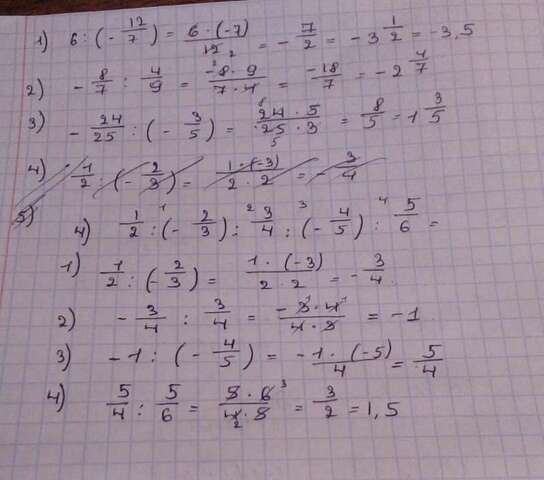 1) 6 : (- 12/7) = 6 · (-7)/12 2 = - 7/2 = -3 1/2 = -3,5
2) - 8/7 : 4/9 = -8 · 9/7 · 4 = -18/7 = -2 4/7
3) - 24/25 : (- 3/5) = 24 · 5/25 · 3 = 8/5 = 1 3/5
4) 1/2 : (- 2/3) = 1 · (-3)/2 · 2 = - 3/4
5)
4) 1/2 :1 (- 2/3) :2 3/4 :3 (- 4/5) :4 5/6 =
1) 1/2 : (- 2/3) = 1 · (-3)/2 · 2 = - 3/4
2) - 3/4 : 3/4 = -3 · 4/4 · 3 = -1
3) -1 : (- 4/5) = -1 · (-5)/4 = 5/4
4) 5/4 : 5/6 = 5 · 6 3/4 2 · 5 = 3/2 = 1,5